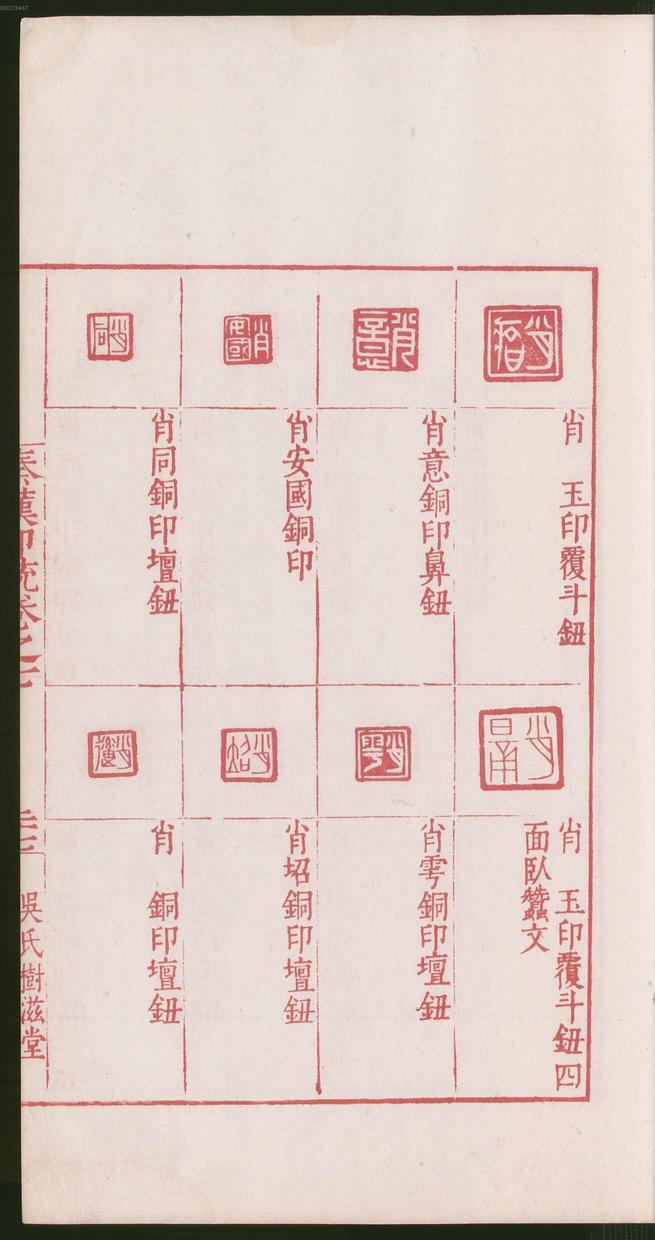 肖　玉印覆斗鈕
肖意銅印鼻鈕
肖安國銅印
肖同銅印壇鈕
肖　玉印覆斗鈕四
面臥蠶文
肖雩銅印壇鈕
肖㘛銅印壇鈕
肖　銅印壇鈕
秦漢印統卷之七
吳氏樹滋堂
00073467